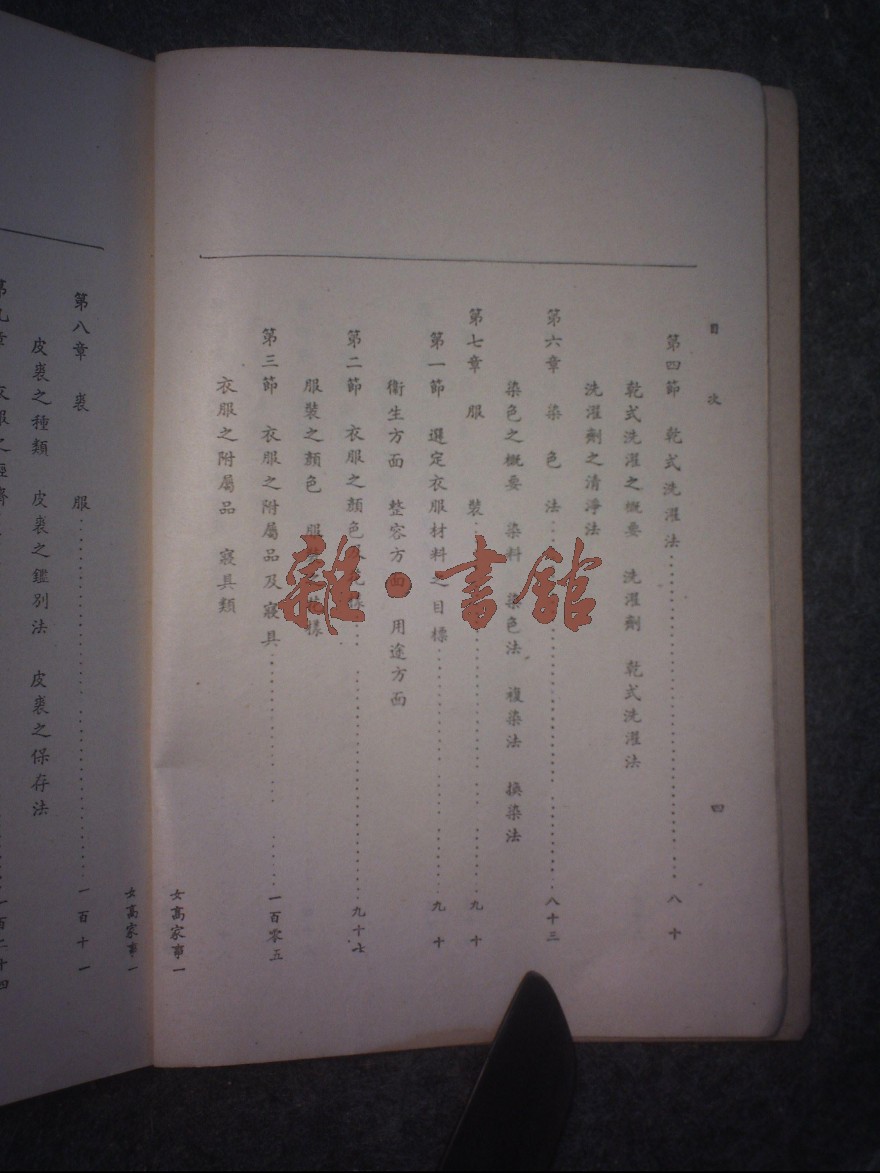 目次 四
第四節 乾式洗濯法 八十
乾式洗濯之概要 洗濯劑 乾式洗濯法
洗濯劑之清淨法
第六章 染色法 八十三
染色之概要 染料 染色法 複染法 換染法
第七章 服裝 九十
第一節 選定衣服材料之目標 九十
衞生方面 整容方面 用途方面
第二節 衣服之顏色 九十七
服裝之顏色 服 樣
第三節 衣服之附屬品及寢具 一百零五
衣服之附屬品 寢具類
女高家事一
女高家事一
第八章 裘服 一百十一
皮裘之種類 皮裘之鑑別法 皮裘之保存法
雜·書館